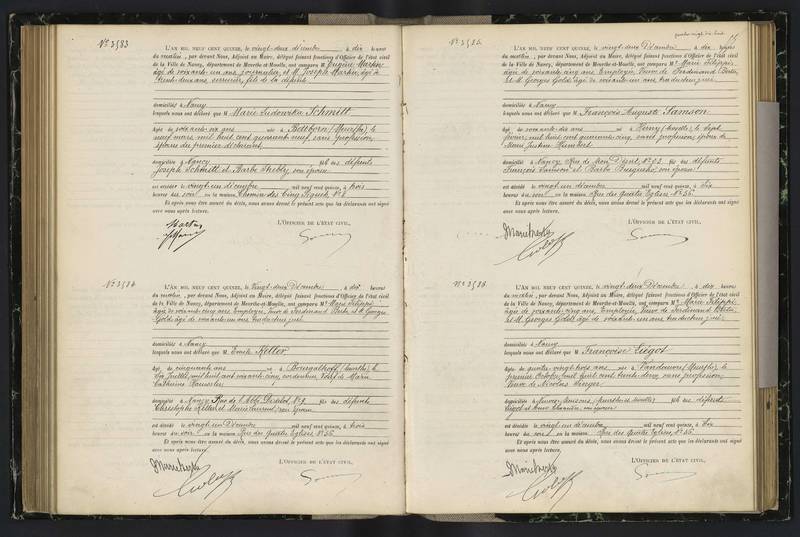 N° 3583
L'AN MIL NEUF CENT QUINZE, le vingt-deux décembre à dix heures
du matin, par devant Nous, Adjoint au Maire, délégué faisant fonctions d'Officier de l'état civil
de la Ville de Nancy, département de Meurthe-et-Moselle, ont comparu M
âgé de soixante un ans, journalier, et M. Joseph Martin, âgé de
trente deux ans, serrurier, fils de la défunte
domiciliés à Nancy
lesquels nous ont déclaré que M Marie Ludowika Schmitt
âgée de soixante-six ans née à (Meurthe), le
neuf mars mil huit cent quarante neuf, sans profession,
épouse du premier déclarant
domiciliée à Nancy fille de défunts
Joseph Schmitt et Barbe son épouse
est décédée le vingt-un décembre mil neuf cent quinze, à trois
heures du soir en la maison,
Et après nous être assuré du décès, nous avons dressé le présent acte que les déclarants ont signé
avec nous après lecture.
L'OFFICIER DE L'ÉTAT CIVIL,
N° 3584
L'AN MIL NEUF CENT QUINZE, le vingt-deux Décembre à dix heures
du matin, par devant Nous, Adjoint au Maire, délégué faisant fonctions d'Officier de l'état civil
de la Ville de Nancy, département de Meurthe-et-Moselle, ont comparu M Marie
âgée de soixante cinq ans Employée, Veuve de Ferdinand et M. Georges
Gold âgé de soixante un ans traducteur juré
domiciliés à Nancy
lesquels nous ont déclaré que M Emile Keller
âgé de cinquante ans né à le
six Juillet mil huit cent soixante cinq, cordonnier, Veuf de Marie
Catherine
domicilié à Nancy Rue de l'Abbé Didelot, N° 9 fils de défunts
Christophe Keller et Marie son épouse
est décédé le vingt un Décembre mil neuf cent quinze, à trois
heures du soir en la maison Rue des Quatre Eglises N° 55
Et après nous être assuré du décès, nous avons dressé le présent acte que les déclarants ont signé
avec nous après lecture.
L'OFFICIER DE L'ÉTAT CIVIL,
N° 3585
L'AN MIL NEUF CENT QUINZE, le vingt deux Décembre à dix heures
du matin, par devant Nous, Adjoint au Maire, délégué faisant fonctions d'Officier de l'état civil
de la Ville de Nancy, département de Meurthe-et-Moselle, ont comparu M Marie
âgée de soixante cinq ans Employée, Veuve de Ferdinand
et M. Georges Gold âgé de soixante un ans traducteur juré
domiciliés à Nancy
lesquels nous ont déclaré que M François Auguste Samson
âgé de soixante dix ans né à (Moselle) le sept
Février mil huit cent quarante cinq, sans profession, époux de
Marie Justine Humbert
domicilié à Nancy, Rue de Mon Désert, N° 92 fils de défunts
François Samson et Barbe son épouse
est décédé le vingt un décembre mil neuf cent quinze, à dix
heures du soir en la maison, Rue des Quatre Eglises N° 55
Et après nous être assuré du décès, nous avons dressé le présent acte que les déclarants ont signé
avec nous après lecture.
L'OFFICIER DE L'ÉTAT CIVIL,
N° 3586
L'AN MIL NEUF CENT QUINZE, le vingt deux Décembre à dix heures
du matin, par devant Nous, Adjoint au Maire, délégué faisant fonctions d'Officier de l'état civil
de la Ville de Nancy, département de Meurthe-et-Moselle, ont comparu M Marie
âgée de soixante cinq ans, Employée, Veuve de Ferdinand
et M. Georges Gold âgé de soixante un ans traducteur juré
domiciliés à Nancy
lesquels nous ont déclaré que M Françoise Liégot
âgée de quatre vingt trois ans née à Vandoeuvre (Meurthe), le
premier Octobre mil huit cent trente deux, sans profession,
Veuve de Nicolas
domiciliée à (Meurthe et Moselle) fille de défunts
son épouse
est décédée le vingt un décembre mil neuf cent quinze, à dix
heures du soir en la maison, Rue des Quatre Eglises N° 55
Et après nous être assuré du décès, nous avons dressé le présent acte que les déclarants ont signé
avec nous après lecture.
L'OFFICIER DE L'ÉTAT CIVIL,